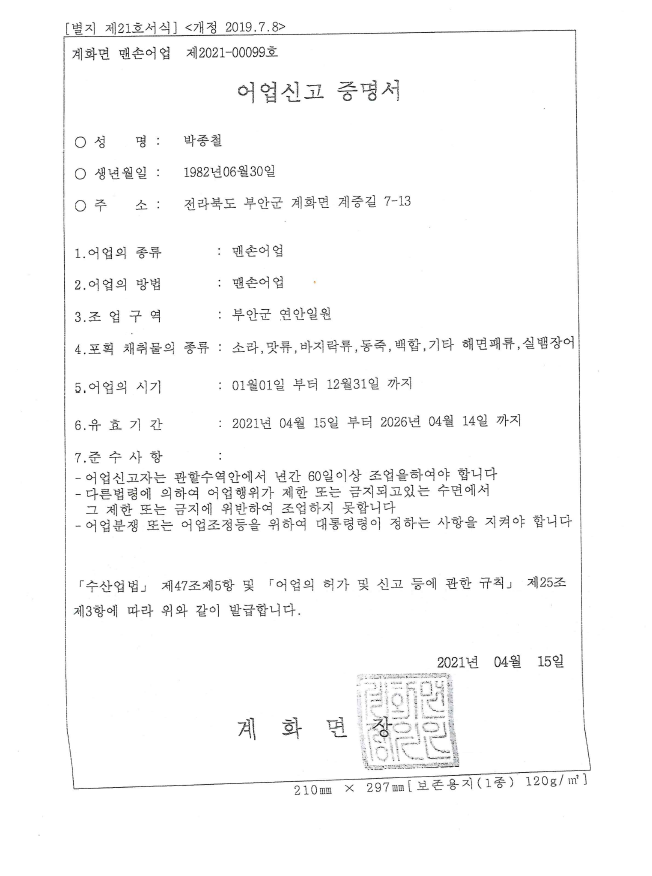 [별지 제21호서식] <개정 2019.7.8>
계화면 맨손어업 제2021-00099호
어업신고 증명서
○ 성 명 : 박종철
○ 생년월일 : 1982년06월30일
○ 주 소 : 전라북도 부안군 계화면 계중길 7-13
1.어업의 종류 : 맨손어업
2.어업의 방법 : 맨손어업
3.조 업 구 역 : 부안군 연안일원
4.포획 채취물의 종류 : 소라,맛류,바지락류,동죽,백합,기타 해면패류,실뱀장어
5.어업의 시기 : 01월01일 부터 12월31일 까지
6.유 효 기 간 : 2021년 04월 15일 부터 2026년 04월 14일 까지
7.준 수 사 항 :
-어업신고자는 관할수역안에서 년간 60일이상 조업을하여야 합니다
-다른법령에 의하여 어업행위가 제한 또는 금지되고있는 수면에서
그 제한 또는 금지에 위반하여 조업하지 못합니다
-어업분쟁 또는 어업조정등을 위하여 대통령령이 정하는 사항을 지켜야 합니다
「수산업법」 제47조제5항 및 「어업의 허가 및 신고 등에 관한 규칙」 제25조
제3항에 따라 위와 같이 발급합니다.
2021년 04월 15일
계 화 면 장
210㎜ × 297㎜[보존용지(1종) 120g/㎡]